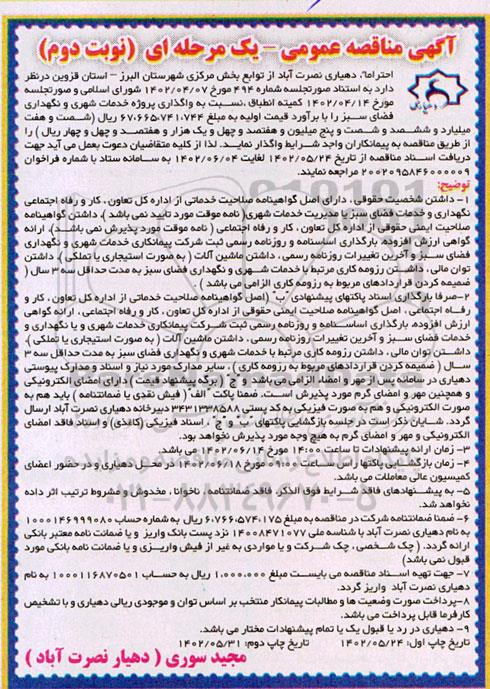 آگهی مناقصه عمومی – یک مرحله ای (نوبت دوم)
احتراماً، دهیاری نصرت آباد از توابع بخش مرکزی شهرستان البرز – استان قزوین درنظر
دارد به استناد صورتجلسه شماره ۴۹۴ مورخ ۱۴۰۲/۰۴/۰۷ شورای اسلامی و صورتجلسه
مورخ ۱۴۰۲/۰۴/۱۴ کمیته انطباق ،نسبت به واگذاری پروژه خدمات شهری و نگهداری
فضای سبز را با برآورد قیمت اولیه به مبلغ ۶۷،۶۶۵،۷۴۱،۷۴۴ ریال (شصت و هفت
میلیارد و ششصد و شصت و پنج میلیون و هفتصد و چهل و یک هزار و هفتصد و چهل و چهار ریال ) را
از طریق مناقصه به پیمانکاران واجد شرایط واگذار نمایند. لذا از کلیه متقاضیان دعوت بعمل می آید جهت
دریافت اسناد مناقصه از تاریخ ۱۴۰۲/۰۵/۲۴ لغایت ۱۴۰۲/۰۶/۰۴ به سامانه ستاد با شماره فراخوان
۲۰۰۲۰۹۵۸۴۶۰۰۰۰۰۹ مراجعه نمایند.
توضیح:
۱- داشتن شخصیت حقوقی ، دارای اصل گواهینامه صلاحیت خدماتی از اداره کل تعاون ، کار و رفاه اجتماعی
نگهداری و خدمات فضای سبز یا مدیریت خدمات شهری( نامه موقت مورد تایید نمی باشد )، داشتن گواهینامه
صلاحیت ایمنی حقوقی از اداره کل تعاون ، کار و رفاه اجتماعی ( نامه موقت مورد پذیرش نمی باشد )، ارائه
گواهی ارزش افزوده، بارگذاری اساسنامه و روزنامه رسمی ثبت شرکت پیمانکاری خدمات شهری و نگهداری
فضای سبز و آخرین تغییرات روزنامه رسمی ، داشتن ماشین آلات ( به صورت استیجاری یا تملکی )، داشتن
توان مالی ، داشتن رزومه کاری مرتبط با خدمات شهری و نگهداری فضای سبز به مدت حداقل سه ۳ سال (
ضمیمه کردن قراردادهای مربوط به رزومه کاری الزامی می باشد )
۲-صرفا بارگذاری اسناد پاکتهای پیشنهادی "ب" (اصل گواهینامه صلاحیت خدماتی از اداره کل تعاون ، کار و
رفاه اجتماعی ، اصل گواهینامه صلاحیت ایمنی حقوقی از اداره کل تعاون ، کار و رفاه اجتماعی ، ارائه گواهی
ارزش افزوده، بارگذاری اساسنامه و روزنامه رسمی ثبت شرکت پیمانکاری خدمات شهری و یا نگهداری و
خدمات فضای سبز و آخرین تغییرات روزنامه رسمی ، داشتن ماشین آلات ( به صورت استیجاری یا تملکی )
،داشتن توان مالی ، داشتن رزومه کاری مرتبط با خدمات شهری و نگهداری فضای سبز به مدت حداقل سه ۳
سال ( ضمیمه کردن قراردادهای مربوط به رزومه کاری ) ، سایر مدارک مورد نیاز و اسناد و مدارک پیوستی
دهیاری در سامانه پس از مهر و امضاء الزامی می باشد و "ج" ( برگه پیشنهاد قیمت ) دارای امضای الکترونیکی
و همچنین مهر و امضای گرم مورد پذیرش است، ضمنا پاکت "الف" ( فیش نقدی یا ضمانتنامه ) باید هم به
صورت الکترونیکی و هم به صورت فیزیکی به کد پستی ۳۴۳۱۳۳۸۵۸۸ دبیرخانه دهیاری نصرت آباد ارسال
گردد. شایان ذکر است در جلسه بازگشایی پاکتهای "ب" و "ج" ، اسناد فیزیکی (کاغذی) و اسناد فاقد امضای
الکترونیکی و مهر و امضای گرم به هیچ وجه مورد پذیرش نخواهد بود.
۳- زمان ارائه پیشنهادات تا ساعت ۱۴:۰۰ مورخ ۱۴۰۲/۰۶/۱۴ می باشد.
۴- زمان بازگشایی پاکتها راس ساعت ۰۹:۰۰ مورخ ۱۴۰۲/۰۶/۱۸ در محل دهیاری و در حضور اعضای
کمیسیون عالی معاملات می باشد.
۵- به پیشنهادهای فاقد شرایط فوق الذکر، فاقد ضمانتنامه ، ناخوانا ، مخدوش و مشروط ترتیب اثر داده
نخواهد شد.
۶- ضمنا ضمانتنامه شرکت در مناقصه به مبلغ ۶،۷۶۶،۵۷۴،۱۷۵ ریال به شماره حساب ۱۰۰۰۱۴۶۹۹۹۰۸۰
به نام دهیاری نصرت آباد با شناسه ملی ۱۴۰۰۸۴۷۱۰۷۷ نزد پست بانک واریز و یا ضمانت نامه معتبر بانکی
ارائه گردد. ( چک شخصی ، چک شرکت و یا مواردی به غیر از فیش واریزی و یا ضمانت نامه بانکی مورد
قبول نمی باشد)
۷- جهت تهیه اسناد مناقصه می بایست مبلغ ۱،۰۰۰،۰۰۰ ریال به حساب ۱۰۰۰۱۱۶۸۷۰۵۰۱ به نام
دهیاری نصرت آباد واریز گردد.
۸-پرداخت صورت وضعیت ها و مطالبات پیمانکار منتخب بر اساس توان و موجودی ریالی دهیاری و با تشخیص
کارفرما قابل پرداخت می باشد.
۹- دهیاری در رد یا قبول یک یا تمام پیشنهادات مختار می باشد.
تاریخ چاپ اول: ۱۴۰۲/۰۵/۲۴ تاریخ چاپ دوم: ۱۴۰۲/۰۵/۳۱
مجید سوری ( دهیار نصرت آباد )
۰۲۱-۸۸۳۴۹۶۷۰-۵